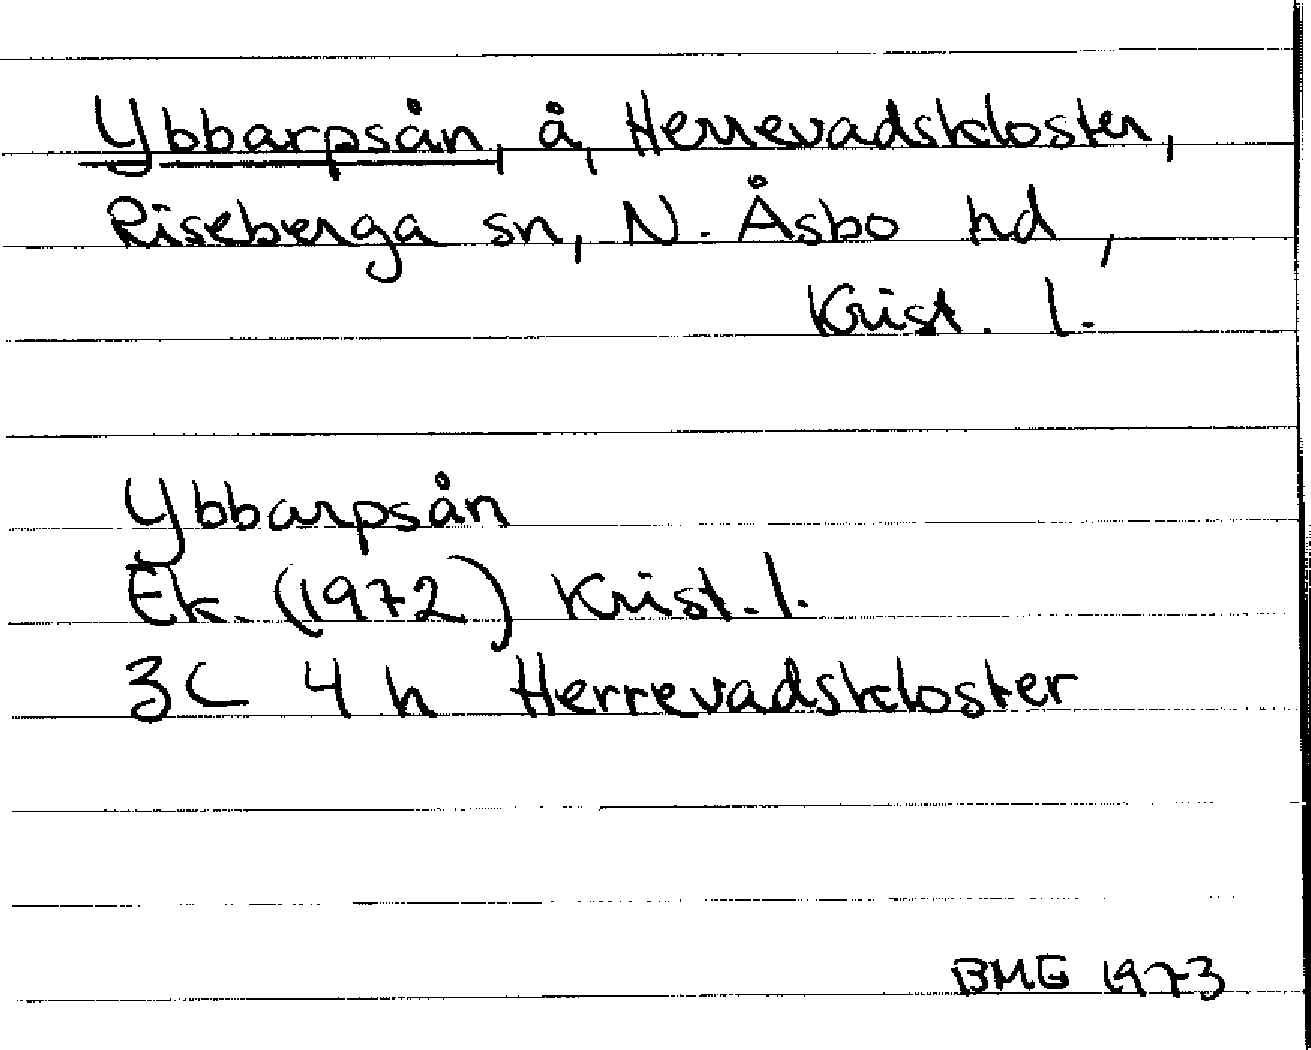 Ybbarpsån, å, Herrevadskloster,
Riseberga sn, N. Åsbo hd,
Krist. l.
Ybbarpsån
Ek. (1972) Krist. l.
3C 4h Herrevadskloster
BMG 1973